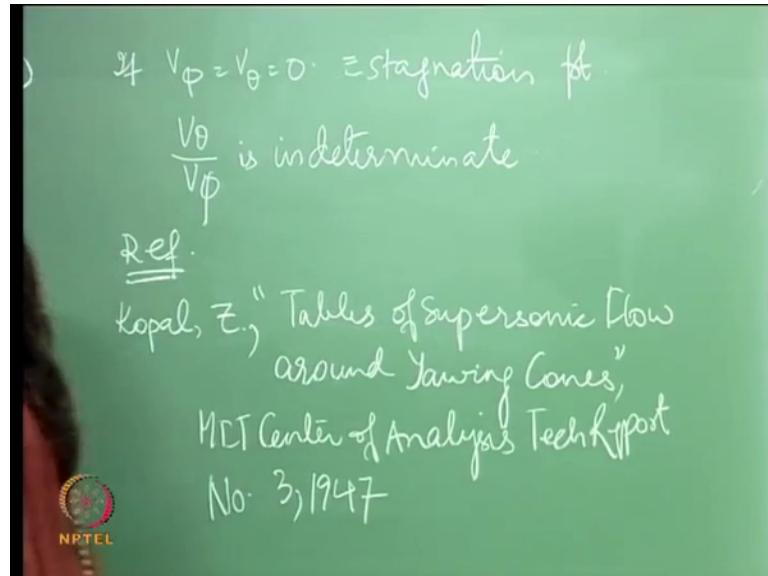 ) If Vφ = Vθ = 0. ≡ stagnation pt.
Vθ
Vφ is indeterminate
Ref.
Kopal, Z., "Tables of Supersonic Flow
around Yawing Cones,"
MIT Center of Analysis Tech Report
No. 3, 1947
NPTEL